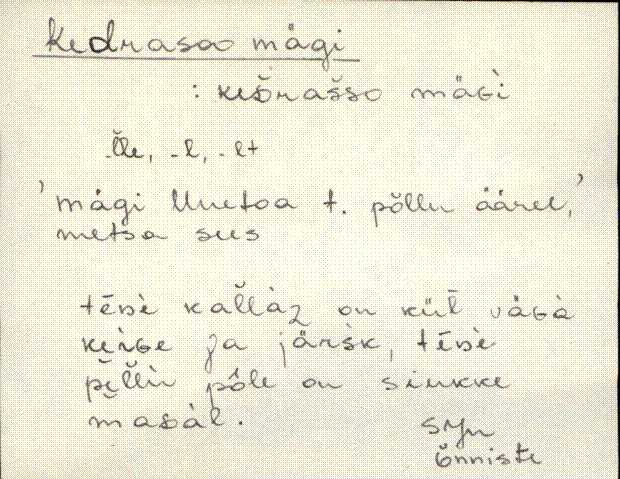 Kedrasoo mägi
: keDrašso mäGì
-l̆le, -l, -lt
'mägi Uuetoa t. põllu ääres,'
metsa sees
tēsè kal̆làz on kül̆ väGà
kerGe ja järsk, tēsè
pēl̆lù pôle on sinkke
maDàl.
Syn
Õnniste